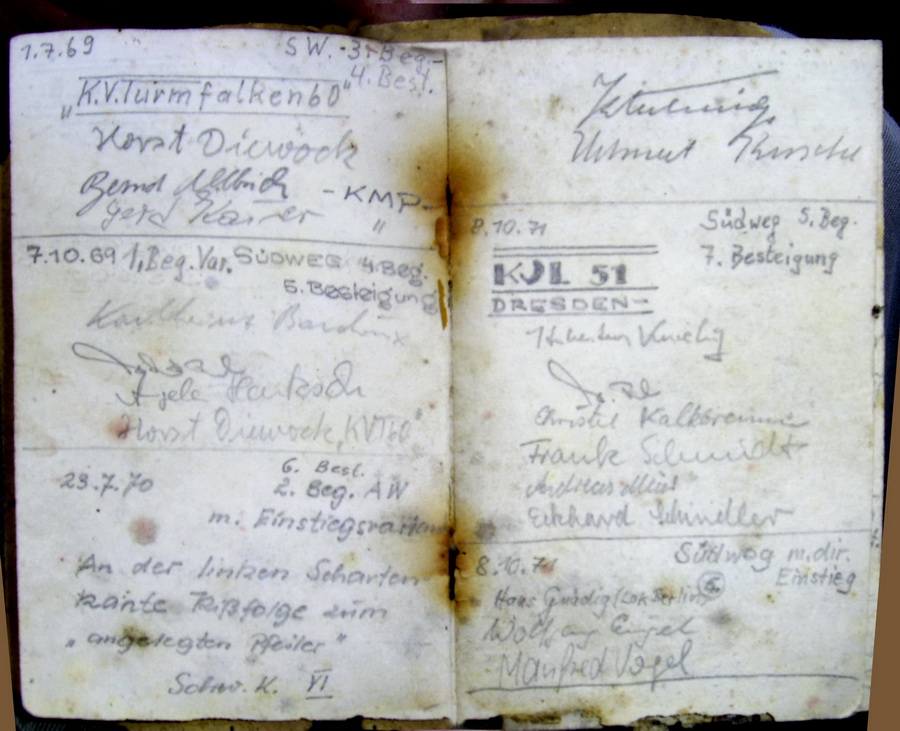 1.7.69 SW. - 3. Beg. -
4. Best.
"K.V. Turmfalken 60"
Horst Diewock
Bernd Ullrich - KMP -
Gerd Kaiser "
7.10.69 1. Beg. Var. SÜDWEG 4. Beg.
5. Besteigung
Karlheinz
Horst Diewock "KVT60"
23.7.70 6. Best.
2. Beg. AW
m. Einstiegsvariante
An der linken Scharten
kante Rißfolge zum
"angelegten Pfeiler"
Schw. K. VI
Helmut
8.10.71 Südweg 5. Beg.
7. Besteigung
KJL 51
DRESDEN -
Christel Kalkbrenner
Frank Schmidt
Andreas
Eckhard Schindler
8.10.71 Südweg m. dir.
Einstieg
Hans (Lok Berlin)
Wolfgang Engel
Manfred Vogel